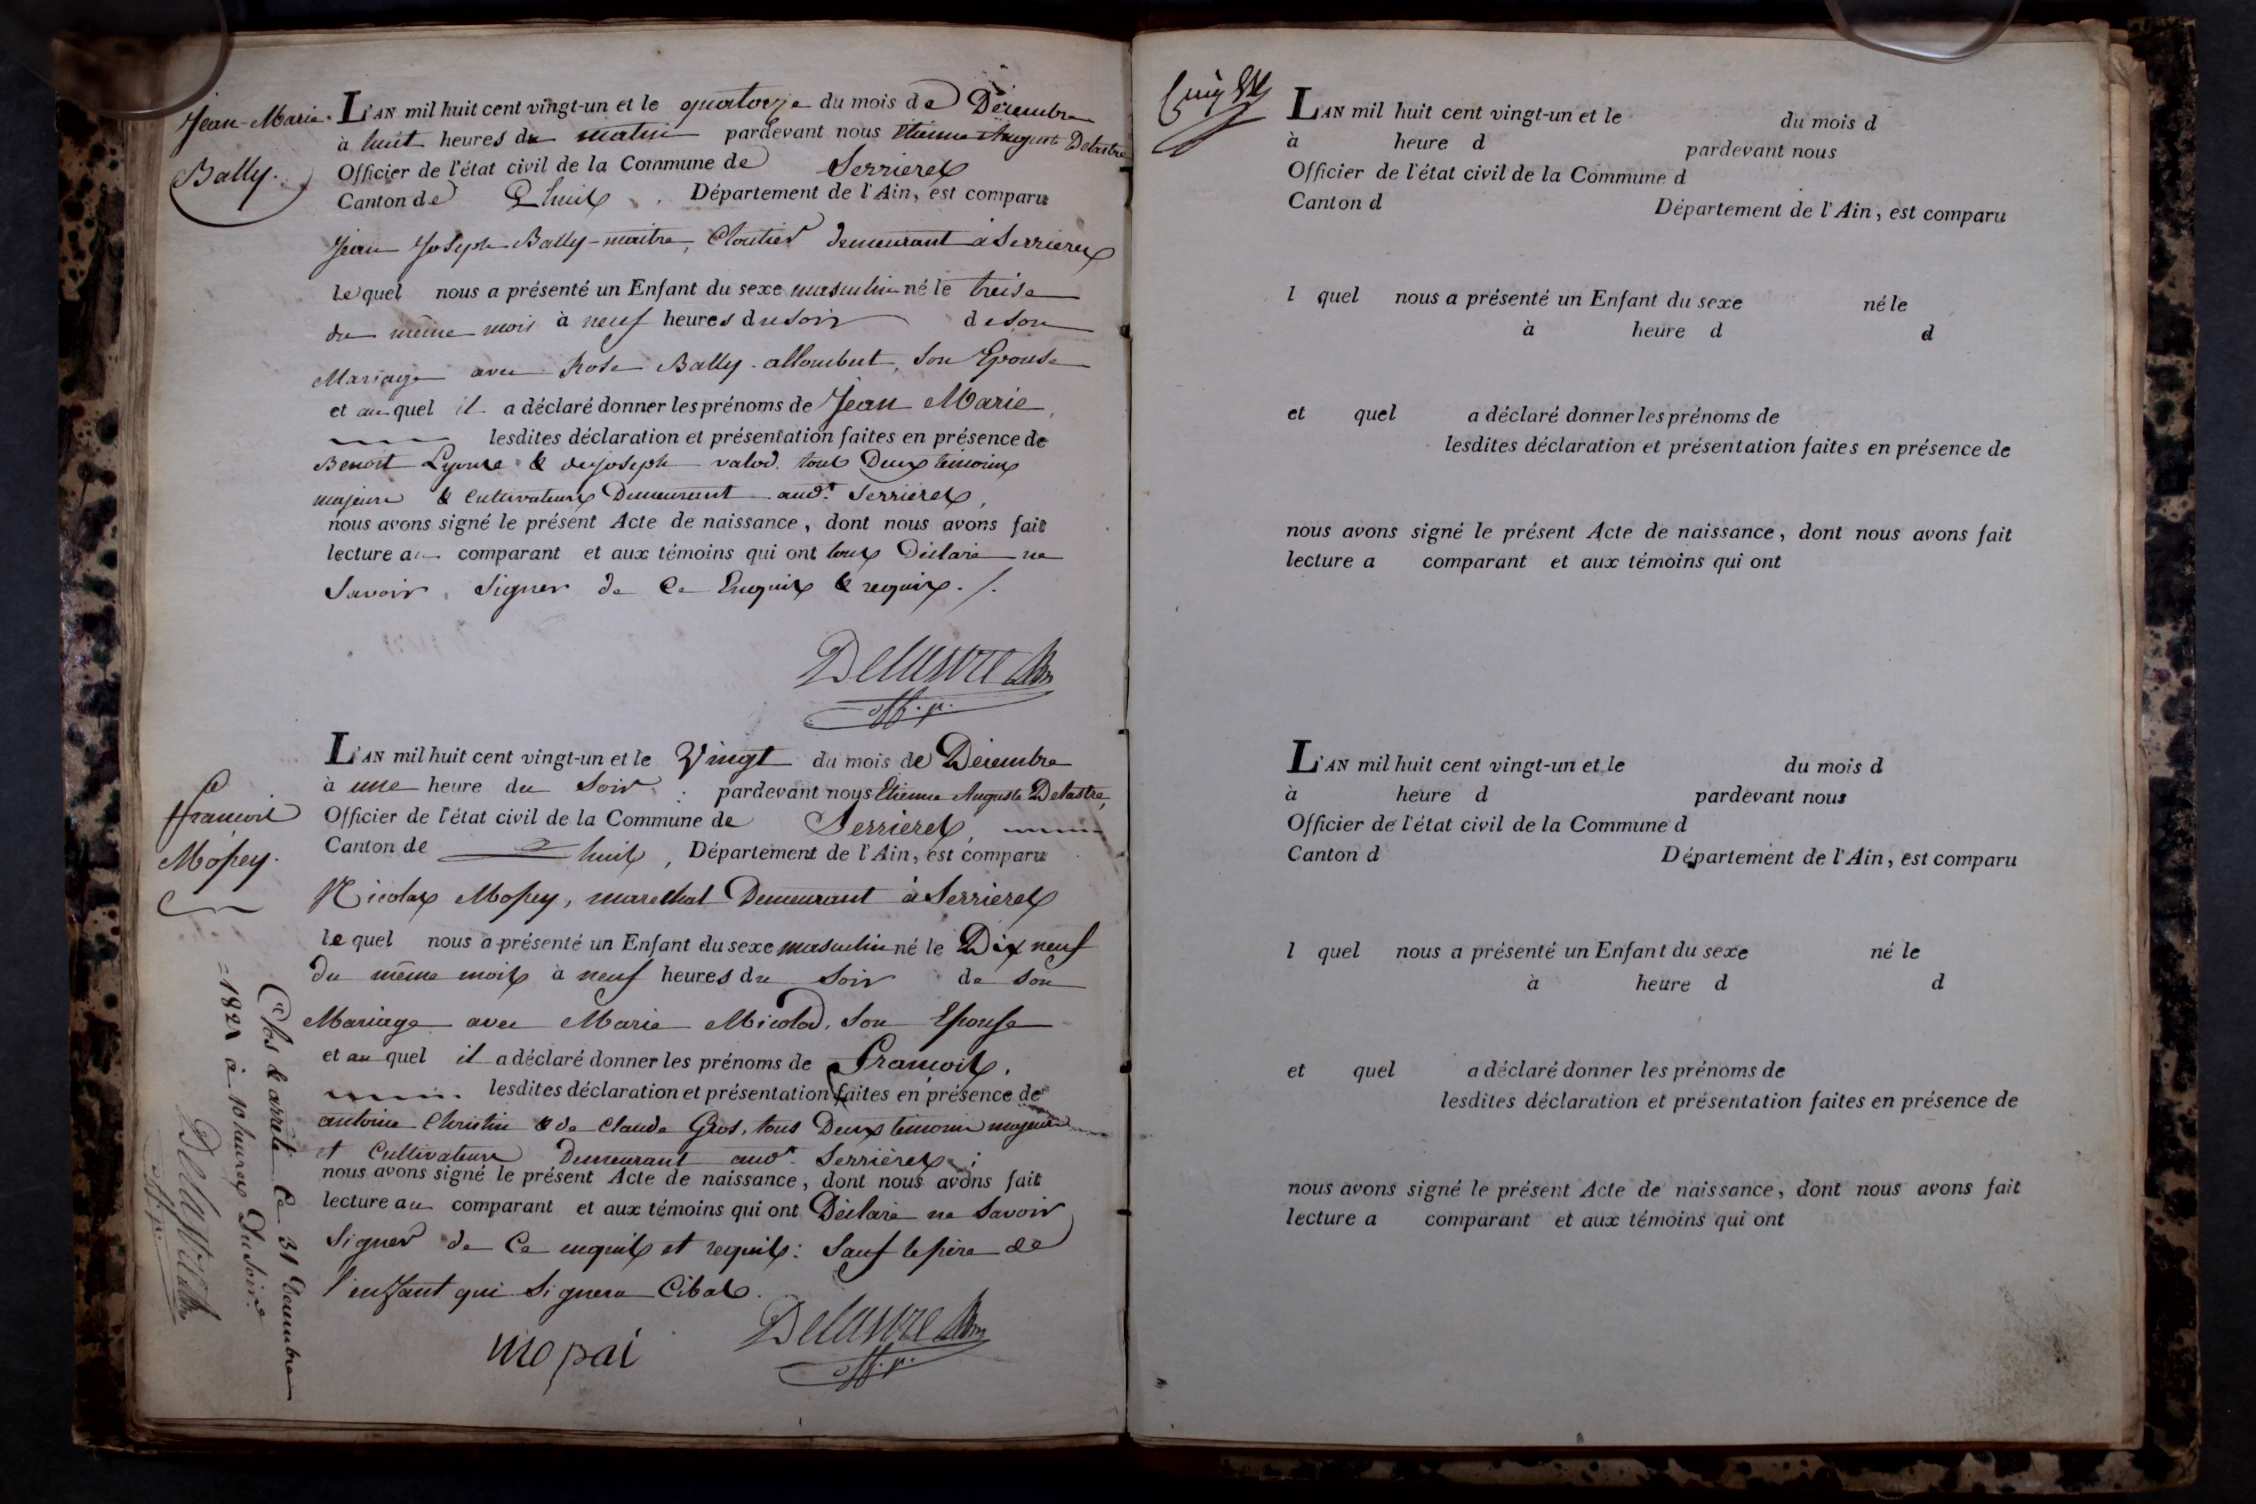 Jean-Marie
Bally.
L'AN mil huit cent vingt-un et le quatorze du mois de Décembre
à huit heures du matin pardevant nous Etienne August Delastre
Officier de l'état civil de la Commune de Serrieres
Canton de Lhuis, Département de l'Ain, est comparu
Jean Joseph Bally-maitre, Cloutier demeurant à Serrieres
le quel nous a présenté un Enfant du sexe masculin né le treise
du même mois à neuf heures du soir de son
Mariage avec Rose Bally-allombert, son Epouse
et au quel il a déclaré donner les prénoms de Jean Marie,
lesdites déclaration et présentation faites en présence de
Benoit & de joseph valod. tous Deux témoins
majeurs & Cultivateurs Demeurant aud.t Serrieres,
nous avons signé le présent Acte de naissance, dont nous avons fait
lecture au comparant et aux témoins qui ont tous Déclaré ne
Savoir Signer de Ce Enquis & requis./.
Delastre
off. p.
François
Mopey.
L'AN mil huit cent vingt-un et le Vingt du mois de Décembre
à une heure du Soir pardevant nous Etienne Auguste Delastre,
Officier de l'état civil de la Commune de Serrieres,
Canton de Lhuis, Département de l'Ain, est comparu
Nicolas Mopey, marechal Demeurant à Serrieres
le quel nous a présenté un Enfant du sexe masculin né le Dix neuf
Du même mois à neuf heures du Soir de son
Mariage avec Marie Micolod, Son Epouse
et au quel il a déclaré donner les prénoms de François,
lesdites déclaration et présentation faites en présence de
antoine Christin & de Claude Gros, tous Deux temoins majeurs
et Cultivateurs Demeurant aud.t Serrières;
nous avons signé le présent Acte de naissance, dont nous avons fait
lecture au comparant et aux témoins qui ont Déclaré ne Savoir
Signer de Ce enquis et requis: Sauf le père de
l'enfant qui Signera Cibas.
mopai
Delastre
off. p.
Clos & arrêté Ce 31 Décembre
1821 à 10 heures Du soir.
Delastre
off. p.
Cinq
L'AN mil huit cent vingt-un et le du mois d
à heure d pardevant nous
Officier de l'état civil de la Commune d
Canton d Département de l'Ain, est comparu
l quel nous a présenté un Enfant du sexe né le
à heure d d
et quel a déclaré donner les prénoms de
lesdites déclaration et présentation faites en présence de
nous avons signé le présent Acte de naissance, dont nous avons fait
lecture a comparant et aux témoins qui ont
L'AN mil huit cent vingt-un et le du mois d
à heure d pardevant nous
Officier de l'état civil de la Commune d
Canton d Département de l'Ain, est comparu
l quel nous a présenté un Enfant du sexe né le
à heure d d
et quel a déclaré donner les prénoms de
lesdites déclaration et présentation faites en présence de
nous avons signé le présent Acte de naissance, dont nous avons fait
lecture a comparant et aux témoins qui ont